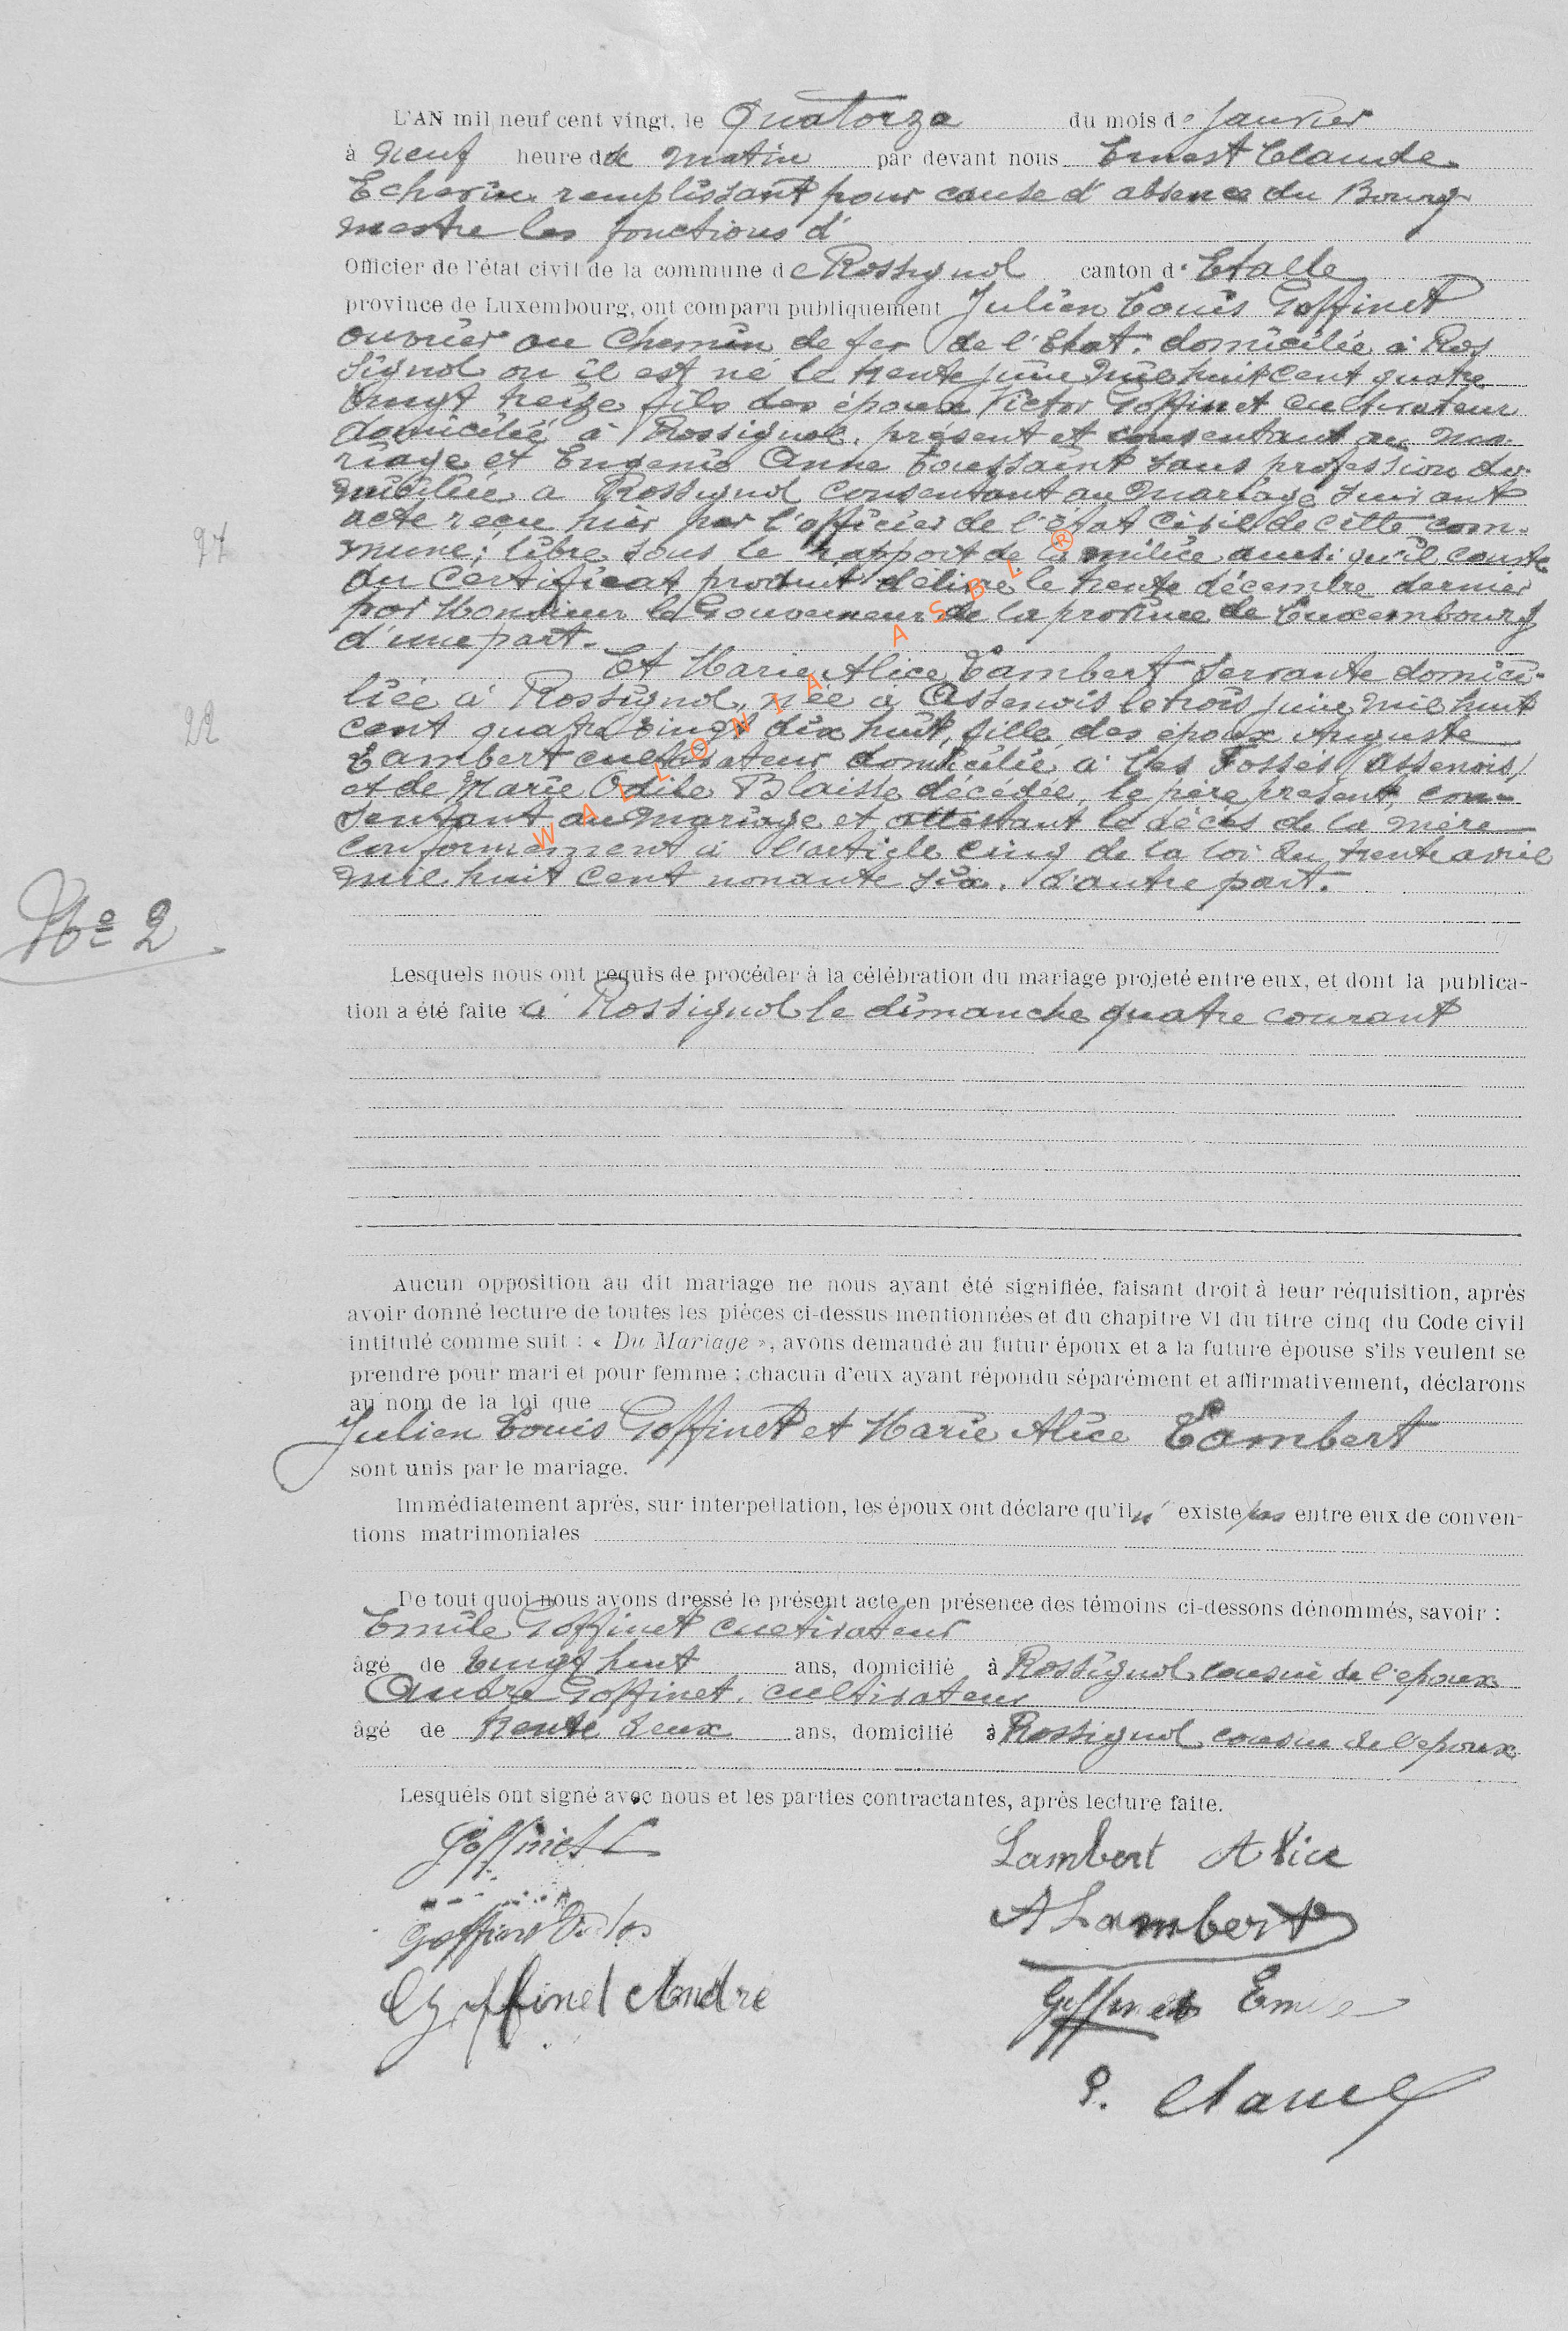 L'AN mil neuf cent vingt, le quatorze du mois de Janvier
à neuf heure du matin par devant nous Ernest Claude
Echevin remplissant pour cause d'absence du Bourg
mestre les fonctions d'
Officier de l'état civil de la commune de Rossignol canton d'Etalle
province de Luxembourg, ont comparu publiquement Julien Louis Goffinet
ouvrier au chemin de fer de l'Etat. domicilié à Ros
signol où il est né le trente juin mil huit cent quatre
vingt treize fils des époux Victor Goffinet cultivateur
domicilié à Rossignol. présent et consentant au ma-
riage et Eugenie Anne Toussaint sans profession do-
miciliée a Rossignol consentant au mariage suivant
acte reçu hier par l'officier de l'état civil de cette com-
27
mune; libre sous le rapport de la milice ainsi qu'il conste
du certificat produit délivré le trente décembre dernier
par Monsieur le Gouverneur de la province de Luxembourg
d'une part.
Et Marie Alice Lambert servante domici-
liée à Rossignol, née à Assenois le trois juin mil huit
22
cent quatre vingt dix huit, fille des époux Auguste
Lambert cultivateur domicilié à Les Fossés (Assenois)
et de Marie Odile Blaisse décédée, le père présent, con-
sentant au mariage et attestant le décès de la mère
conformément à l'article cinq de la loi du trente avril
mil huit cent nonante six. d'autre part.
No 2
WALLONIA ASBL ®
Lesquels nous ont requis de procéder à la célébration du mariage projeté entre eux, et dont la publica-
tion a été faite à Rossignol le dimanche quatre courant
Aucun opposition au dit mariage ne nous ayant été signifiée, faisant droit à leur réquisition, après
avoir donné lecture de toutes les pièces ci-dessus mentionnées et du chapitre VI du titre cinq du Code civil
intitulé comme suit : « Du Mariage », avons demandé au futur époux et a la future épouse s'ils veulent se
prendre pour mari et pour femme : chacun d'eux ayant répondu séparément et affirmativement, déclarons
au nom de la loi que
Julien Louis Goffinet et Marie Alice Lambert
sont unis par le mariage.
Immédiatement après, sur interpellation, les époux ont déclare qu'il n'existe pas entre eux de conven-
tions matrimoniales
De tout quoi nous avons dressé le présent acte en présence des témoins ci-dessons dénommés, savoir :
Emile Goffinet cultivateur
âgé de vingt huit ans, domicilié à Rossignol cousin de l'epoux
André Goffinet. cultivateur
âgé de trente deux ans, domicilié à Rossignol cousin de l'epoux
Lesquels ont signé avec nous et les parties contractantes, après lecture faite.
Goffinet L Lambert Alice
Goffinet A Lambert
Goffinet André Goffinet Emile
E. Claude